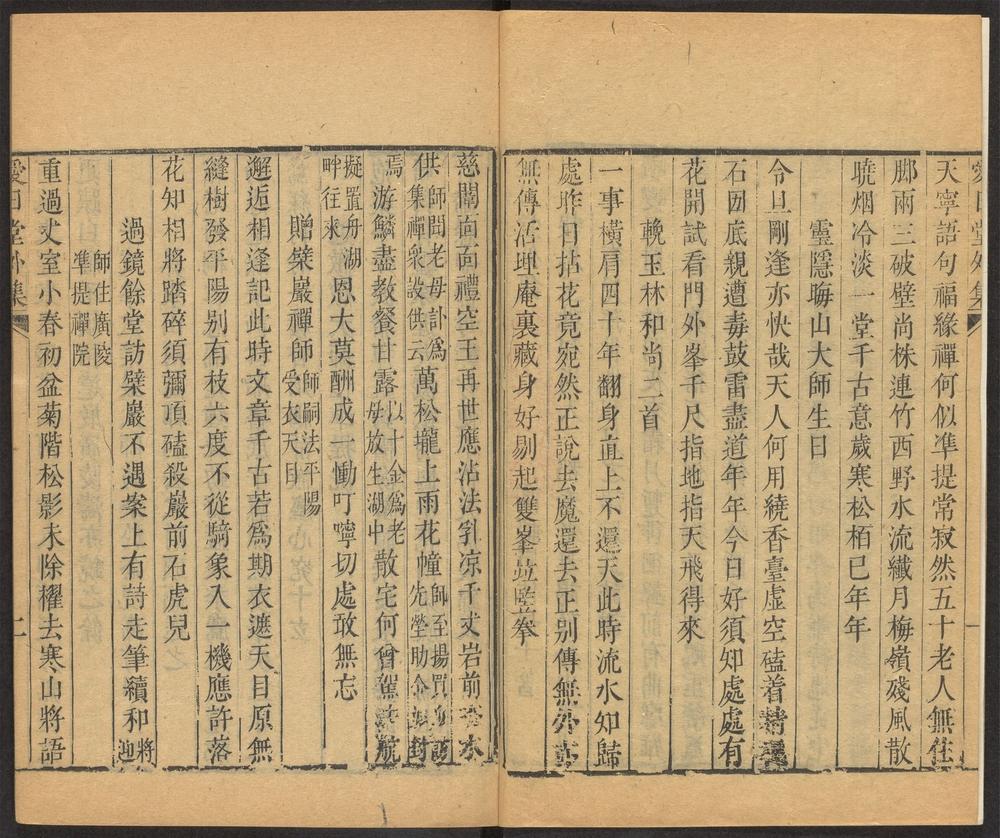 愛日堂外集
天寧語句福緣禪何似凖提常寂然五十老人無住
脚雨三破壁尚株連竹西野水流纖月梅嶺殘風散
曉烟冷淡一堂千古意歲寒松栢已年年
靈隱晦山大師生日
令旦剛逢亦快哉天人何用繞香臺虛空磕着
石囬底親遭毒鼓雷盡道年年今日好須知處處有
花開試看門外峯千尺指地指天飛得來
輓玉林和尚二首
一事橫肩四十年翻身直上不還天此時流水如歸
處昨日拈花竟宛然正說去魔還去正别傳無外
無傳活埋庵裏藏身好剔起雙峯竝豎拳
慈闈面面禮空王再世應沾法乳凉千丈岩前
供師聞老母訃爲集禪衆設供云萬松壠上雨花幢師至揚買舟先塋助金封
焉游鱗盡教餐甘露以十金爲老母放生湖中散宅何曾駕
擬置舟湖畔往來恩大莫酬成一慟叮嚀切處敢無忘
贈檗巖禪師師嗣法平陽受衣天目
邂逅相逢記此時文章千古若爲期衣遮天目原無
縫樹發平陽别有枝六度不從騎象入一機應許落
花知相將踏碎須彌頂磕殺巖前石虎兒
過鏡餘堂訪檗巖不遇案上有詩走筆續和
師住廣陵凖提禪院
重過丈室小春初盆菊階松影未除櫂去寒山將語
愛日堂外集
二